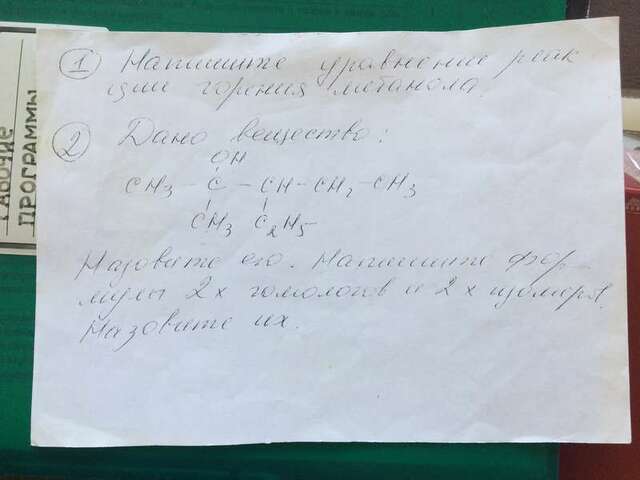 РАБОЧИЕ
ПРОГРАММЫ
1 Напишите уравнение реак
ции горения метанола.
2 Дано вещество:
OH
CH3 - C - CH - CH2 - CH3
CH3 C2H5
Назовите его. Напишите фор-
мулы 2х гомологов и 2х изомеров.
Назовите их.